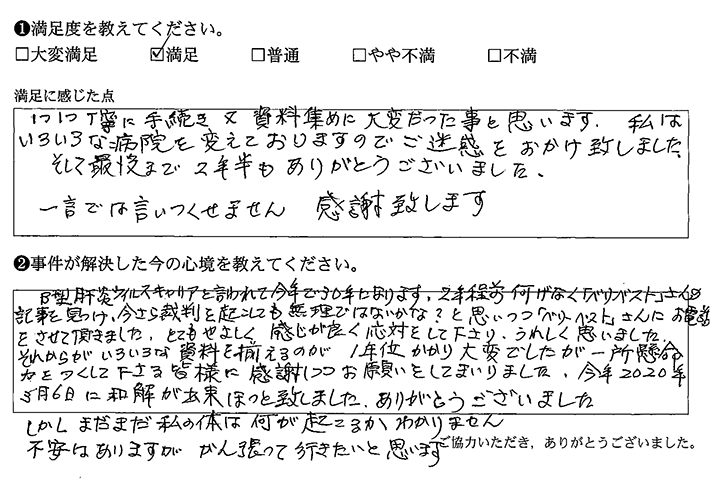 ❶満足度を教えてください。
□大変満足 ☑満足 □普通 □やや不満 □不満
満足に感じた点
1つ1つ丁寧に手続き又資料集めに大変だった事と思います. 私は
いろいろな病院を変えておりますのでご迷惑をおかけ致しました、
そして最後まで2年半もありがとうございました、
一言では言いつくせません 感謝致します
❷事件が解決した今の心境を教えてください。
B型肝炎ウィルスキャリアと言われて今年で30年となります、2年程前何げなく「ベリーベスト」さんの
記事を見つけ、今さら裁判を起こしても無理ではないかな?と思いつつ「ベリーベスト」さんにお電話
をさせて頂きました、とてもやさしく感じが良く応対をして下さり、うれしく思いました、
それからがいろいろな資料を揃えるのが1年位かかり大変でしたが一所懸命
力をつくして下さる皆様に感謝しつつお願いをしてまいりました、今年2020年
5月6日に和解が出来ほっと致しました、ありがとうございました
しかしまだまだ私の体は何が起こるかわかりません
不安はありますが がん張って行きたいと思います
ご協力いただき，ありがとうございました。